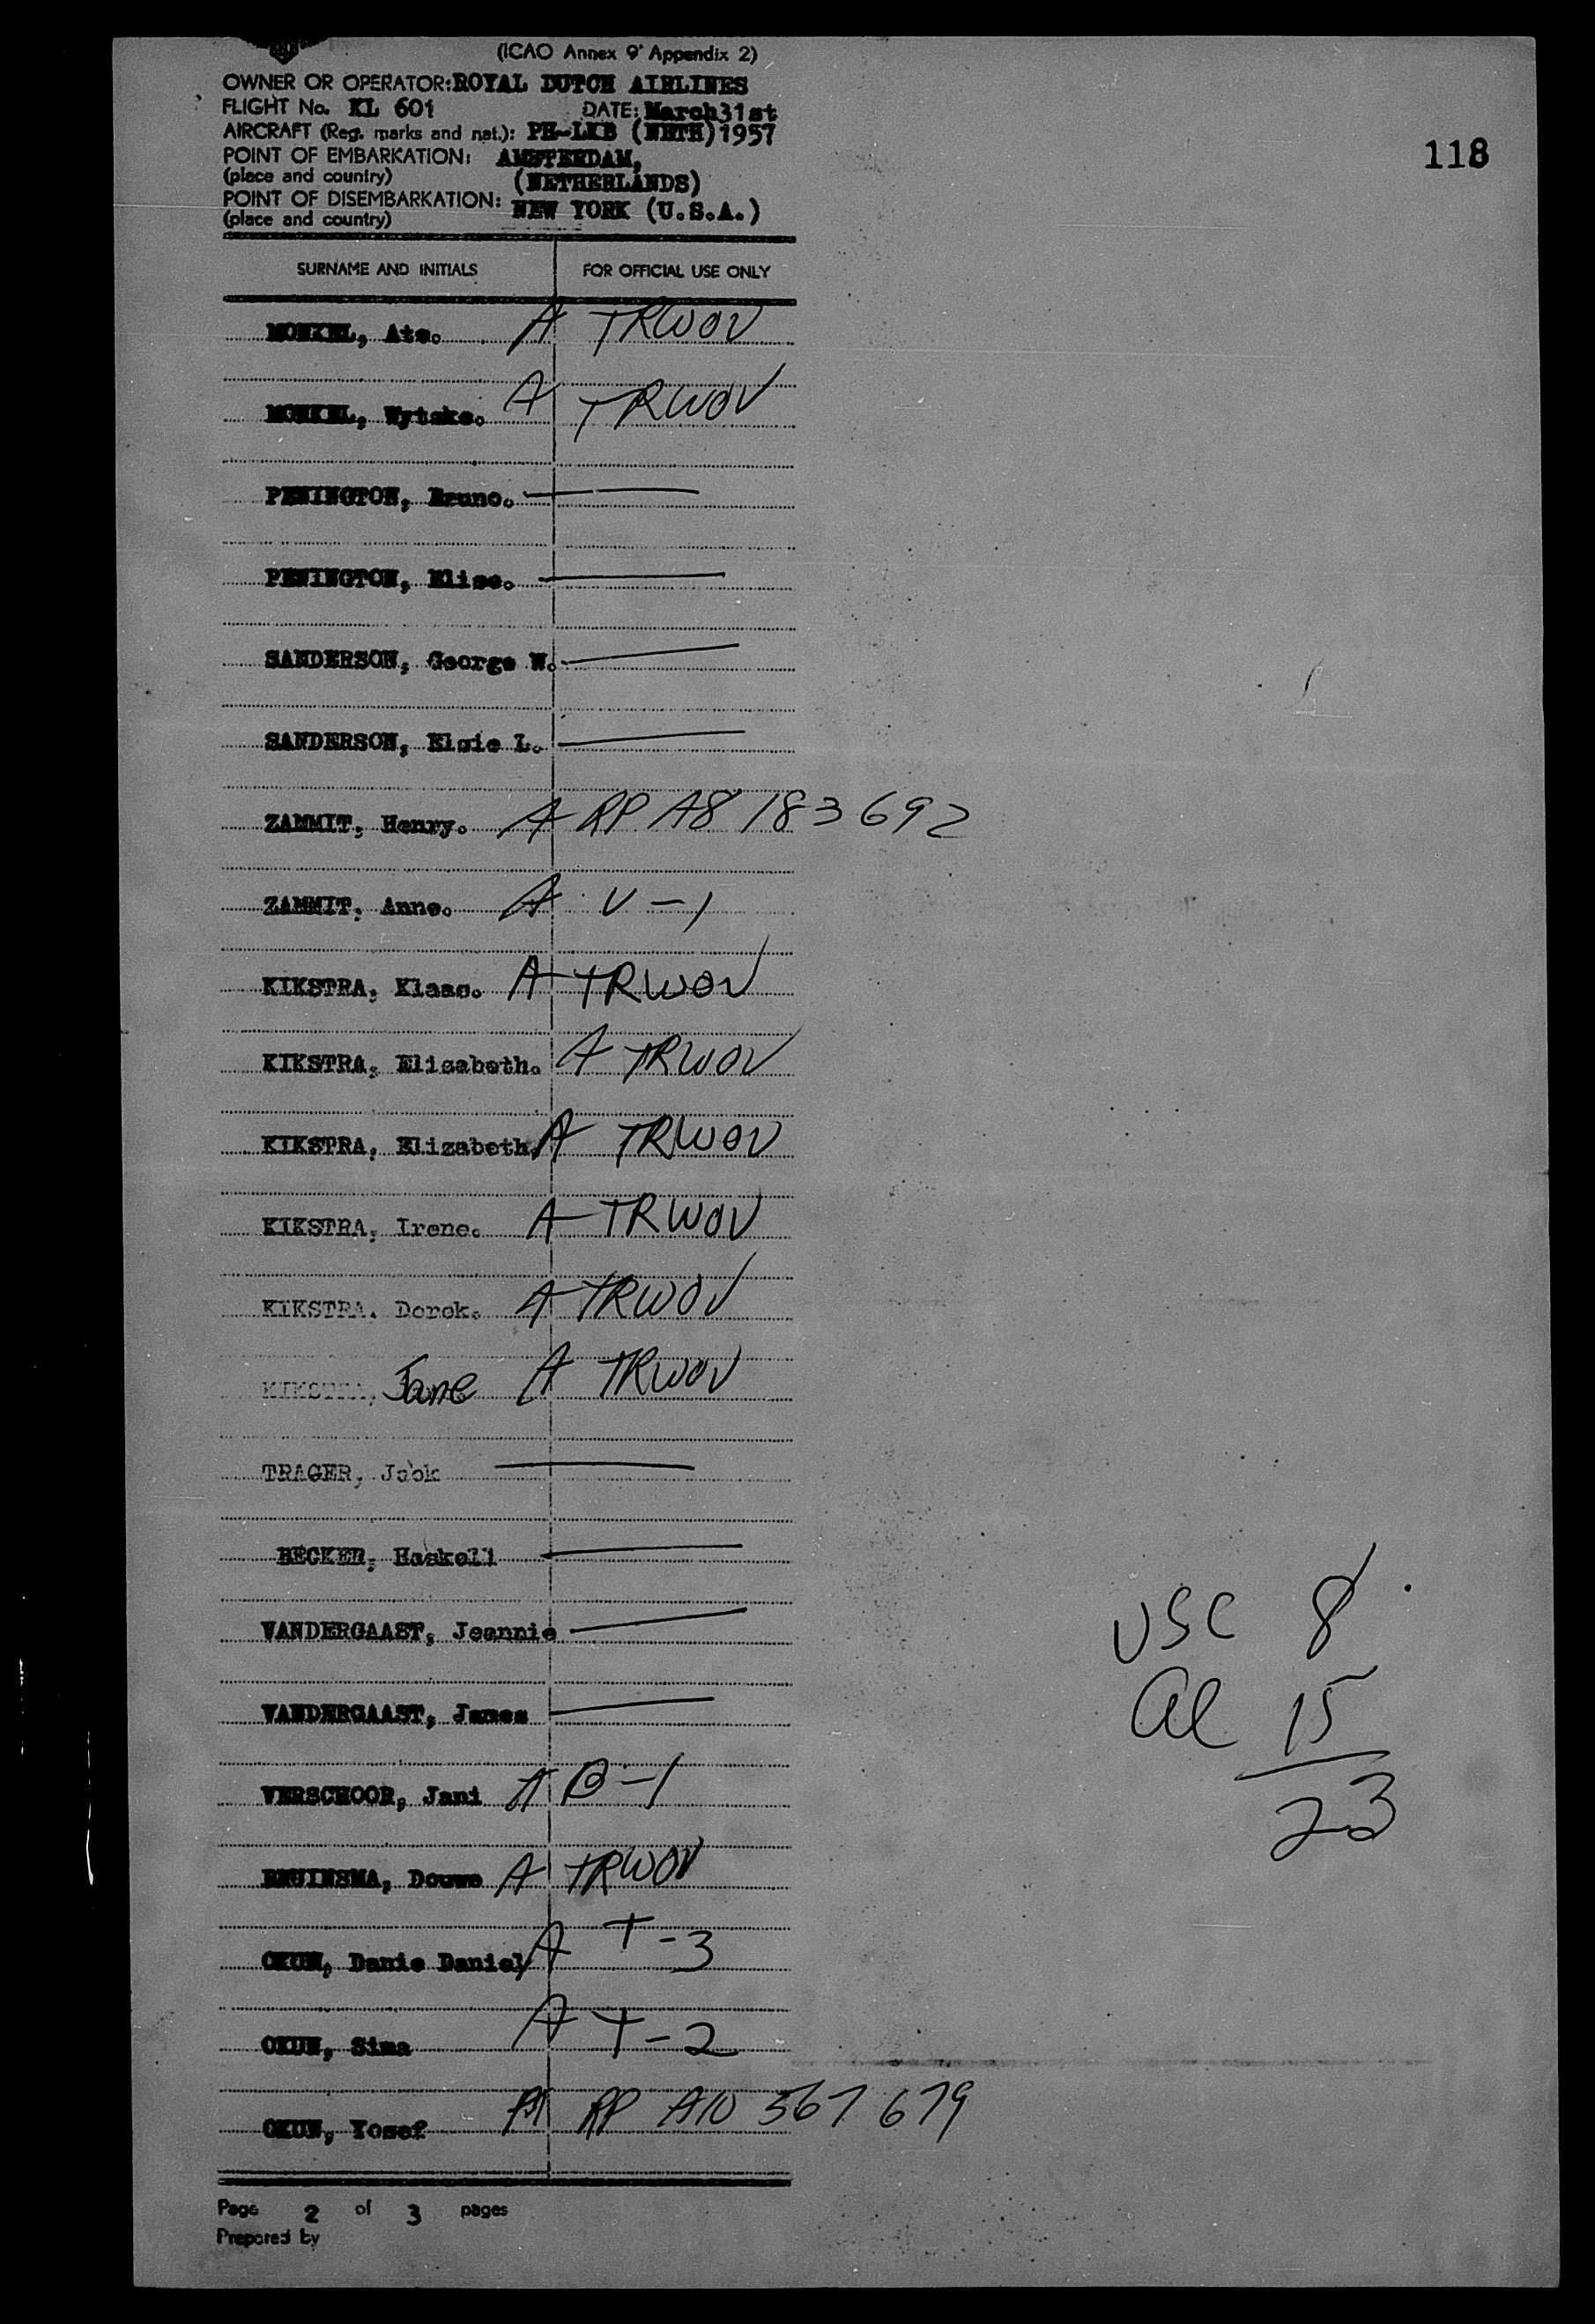 (ICAO Annex 9' Appendix 2)
OWNER OR OPERATOR: ROYAL DUTCH AIRLINES
FLIGHT No. KL 601 DATE: March 31st
AIRCRAFT (Reg. marks and nat.): PH-LKB (NETH) 1957
118
POINT OF EMBARKATION: AMSTERDAM,
(place and country) (NETHERLANDS)
POINT OF DISEMBARKATION: NEW YORK (U.S.A.)
(place and country)
SURNAME AND INITIALS FOR OFFICIAL USE ONLY
Ate. A TRWOV
Wytske. A TRWOV
PENINGTON, Bruno.
PENINGTON, Elise.
SANDERSON, George W.
SANDERSON, Elsie L.
ZAMMIT, Henry. A RP A8 183692
ZAMMIT, Anne. A V-1
KIKSTRA, Klaas. A TRWOV
KIKSTRA, Elisabeth. A TRWOV
KIKSTRA, Elizabeth. A TRWOV
KIKSTRA, Irene. A TRWOV
KIKSTRA, Derek. A TRWOV
KIKSTRA, Jane A TRWOV
TRAGER, Jack
BECKER, Haskell
VANDERGAAST, Jeannie
USC 8
VANDERGAAST, James
al 15
VERSCHOOR, Jani A B-1
23
BRUINSMA, Douwe A TRWOV
OKUN, Danie Daniel A T-3
OKUN, Sima A T-2
OKUN, Yosef A RP A10 567 679
Page 2 of 3 pages
Prepared by